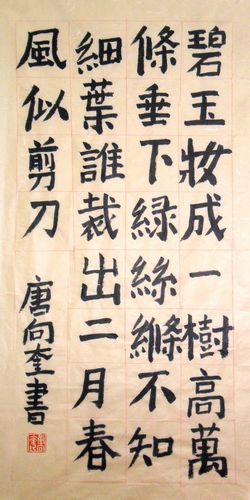 碧玉妝成一樹高萬
條垂下綠絲縧不知
細葉誰裁出二月春
風似剪刀
唐向奎書